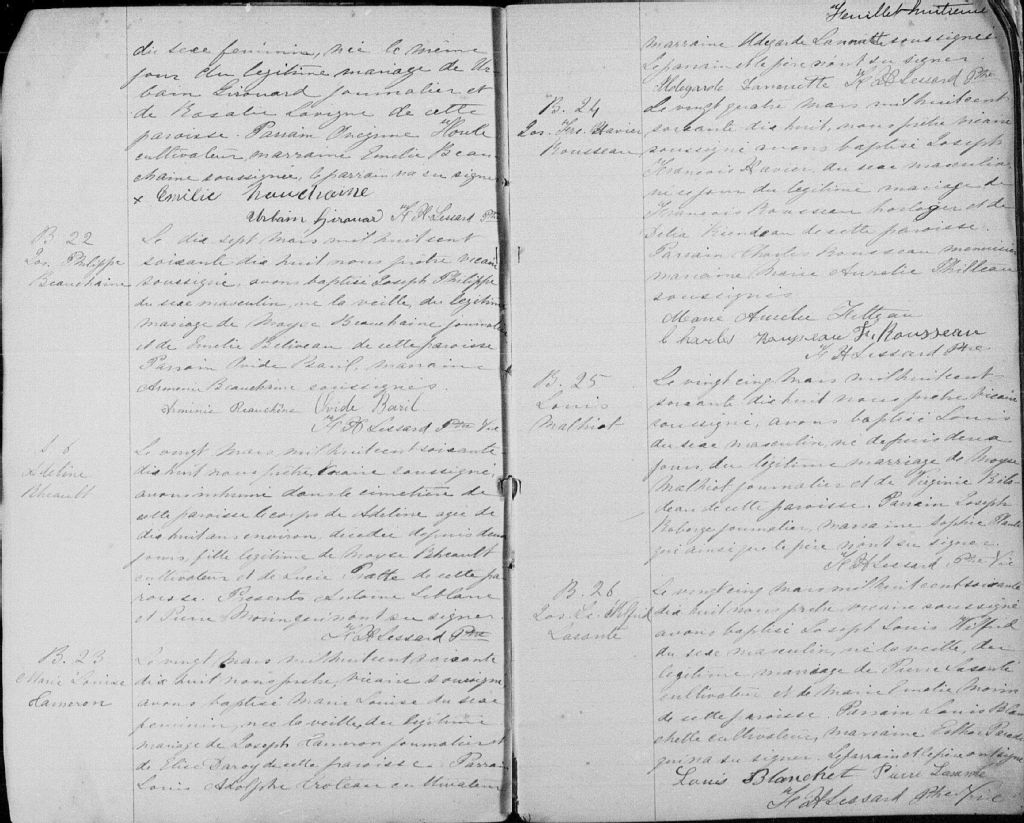 du sexe feminin, née le même
jour du legitime mariage de Ur-
bain Girouard journalier et
de Rosalie Lavigne de cette
paroisse. Parrain Onezime Houle
cultivateur, marraine Emelie Beau
chaine soussignée, le parrain na su signer
x Emilie Bouchaine
Urbain Girouar F H Lessard Ptre
B. 22
Jos. Philippe
Beauchaine
Le dix sept Mars mil huit cent
soixante dix huit nous prêtre vicaire
soussigné, avons baptisé Joseph Philippe
du sexe masculin, né la veille, du legitime
mariage de Moyse Beauchaine journalier
et de Emelie Beliveau de cette paroisse
Parrain Ovide Baril, marraine
Armenie Beauchaine soussignés
Arminie Beauchêne Ovide Baril
F H Lessard Ptre Vic
S. 6
Adeline
Rheault
Le vingt Mars mil huit cent soixante
dix huit nous prêtre, vicaire soussigné
avons inhumé dans le cimetière de
cette paroisse le corps de Adeline agée de
dix huit ans environ, décédée depuis deux
jours, fille legitime de Moyse Rheault
cultivateur et de Lucie Pratte de cette pa
roisse. Presents Antoine Leblanc
et Pierre Morin qui n'ont su signer.
F H Lessard Ptre
B. 23
Marie Louise
Hameron
Le vingt Mars mil huit cent soixante
dix huit nous prêtre, vicaire soussigné
avons baptisé Marie Louise du sexe
feminin, née la veille, du legitime
mariage de Joseph Hameron journalier et
de Elise Darcy de cette paroisse. Parrain
Louis Adolphe Croteau cultivateur
Feuillet huitieme
marraine Aldegarde soussignée
Le parrain et le père n'ont su signer
F H Lessard Ptre
B. 24
Jos. Frs. Xavier
Rousseau
Le vingt quatre Mars mil huit cent
soixante dix huit, nous prêtre vicaire
soussigné avons baptisé Joseph
François Xavier, du sexe masculin
né ce jour du legitime mariage de
François Rousseau horloger et de
Delia de cette paroisse.
Parrain Charles Rousseau menuisier
marraine Marie Aurelie
soussignés
Marie Amelie
Charles Rousseau F. Rousseau
F H Lessard Ptre
B. 25
Louis
Malhiot
Le vingt cinq Mars mil huit cent
soixante dix huit nous prêtre, Vicaire
soussigné, avons baptisé Louis
du sexe masculin, né depuis deux
jours, du légitime marriage de Moyse
Malhiot journalier et de Virginie Bilo-
deau de cette paroisse. Parrain Joseph
Roberge journalier, marraine Sophie
qui ainsi que le père n'ont su signer.
F H Lessard Ptre Vic
B. 26
Jos. Ls. Wilfrid
Lasante
Le vingt cinq Mars mil huit cent soixante
dix huit nous prêtre vicaire soussigné
avons baptisé Joseph Louis Wilfrid
du sexe masculin, né la veille, du
legitime mariage de Pierre Lasanté
cultivateur et de Marie Emelie Morin
de cette paroisse. Parrain Louis Blan
chette cultivateur, marraine Esther
qui na su signer. Le parrain et le père ont signé
Louis Blanchet Pierre Lasante
F H Lessard Ptre Vic